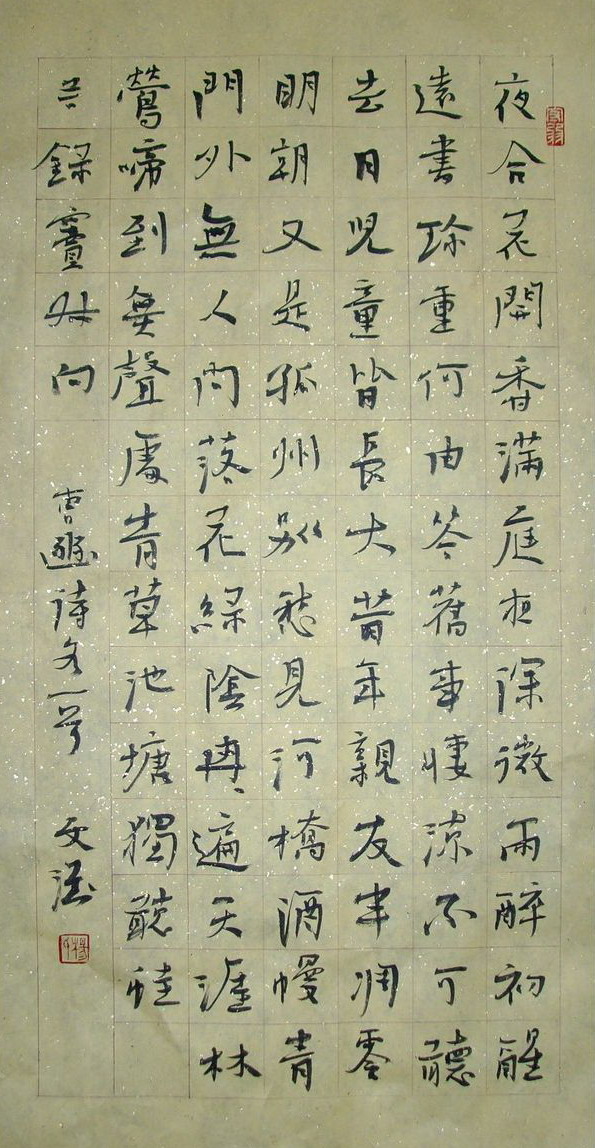 夜合花開香滿庭夜深微雨醉初醒
遠書珍重何由答舊事悽涼不可聽
去日兒童皆長大昔年親友半凋零
明朝又是孤州別愁見河橋酒幔青
門外無人問落花綠陰冉冉遍天涯林
鶯啼到無聲處青草池塘獨聽蛙
錄竇叔向
曹豳詩各一首
文